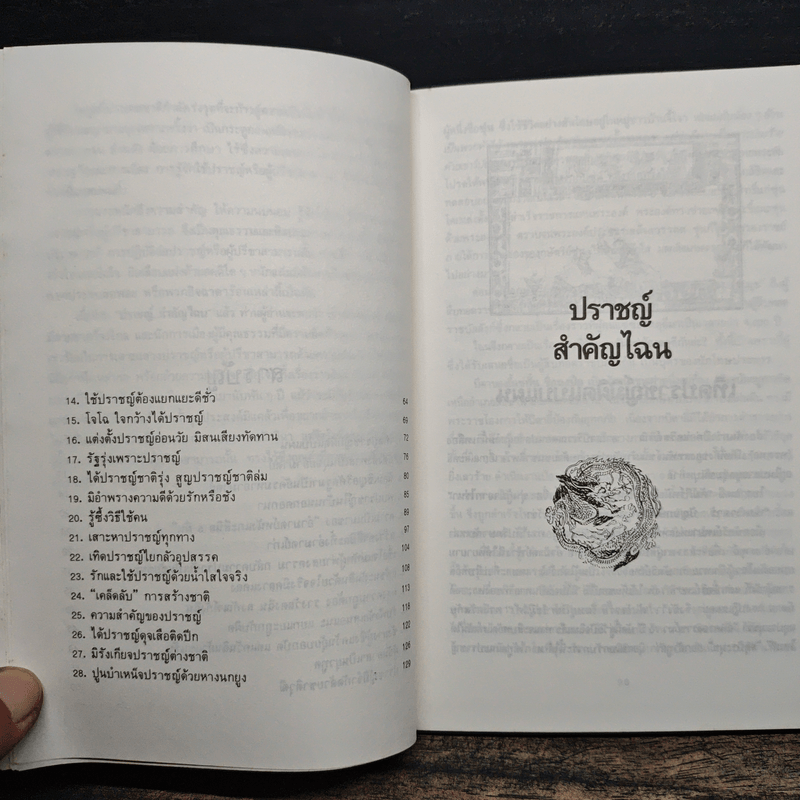 14. ใช้ปราชญ์ต้องแยกแยะดีชั่ว 64
15. โจโฉ ใจกว้างได้ปราชญ์ 69
16. แต่งตั้งปราชญ์อ่อนวัย มิสนเสียงทัดทาน 72
17. รัฐรุ่งเพราะปราชญ์ 76
18. ได้ปราชญ์ชาติรุ่ง สูญปราชญ์ชาติล่ม 80
19. มิอำพรางความดีด้วยรักหรือชัง 85
20. รู้ซึ้งวิธีใช้คน 89
21. เสาะหาปราชญ์ทุกทาง 97
22. เทิดปราชญ์ไยกลัวอุปสรรค 104
23. รักและใช้ปราชญ์ด้วยน้ำใสใจจริง 108
24. "เคล็ดลับ" การสร้างชาติ 113
25. ความสำคัญของปราชญ์ 118
26. ได้ปราชญ์ดุจเสือติดปีก 122
27. มิรังเกียจปราชญ์ต่างชาติ 126
28. ปูนบำเหน็จปราชญ์ด้วยหางนกยูง 129
ปราชญ์
สำคัญไฉน